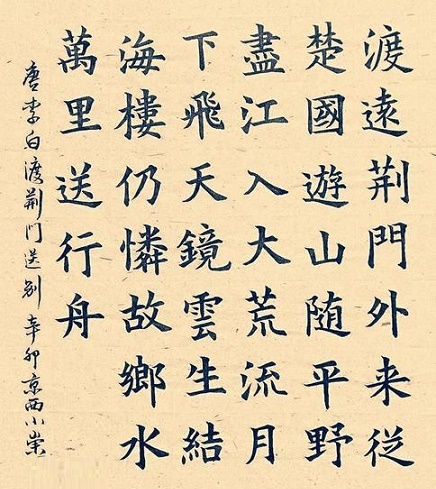 渡遠荆門外来従
楚國遊山随平野
盡江入大荒流月
下飛天鏡雲生結
海樓仍憐故鄉水
萬里送行舟
唐李白渡荆門送别辛卯京西小崇